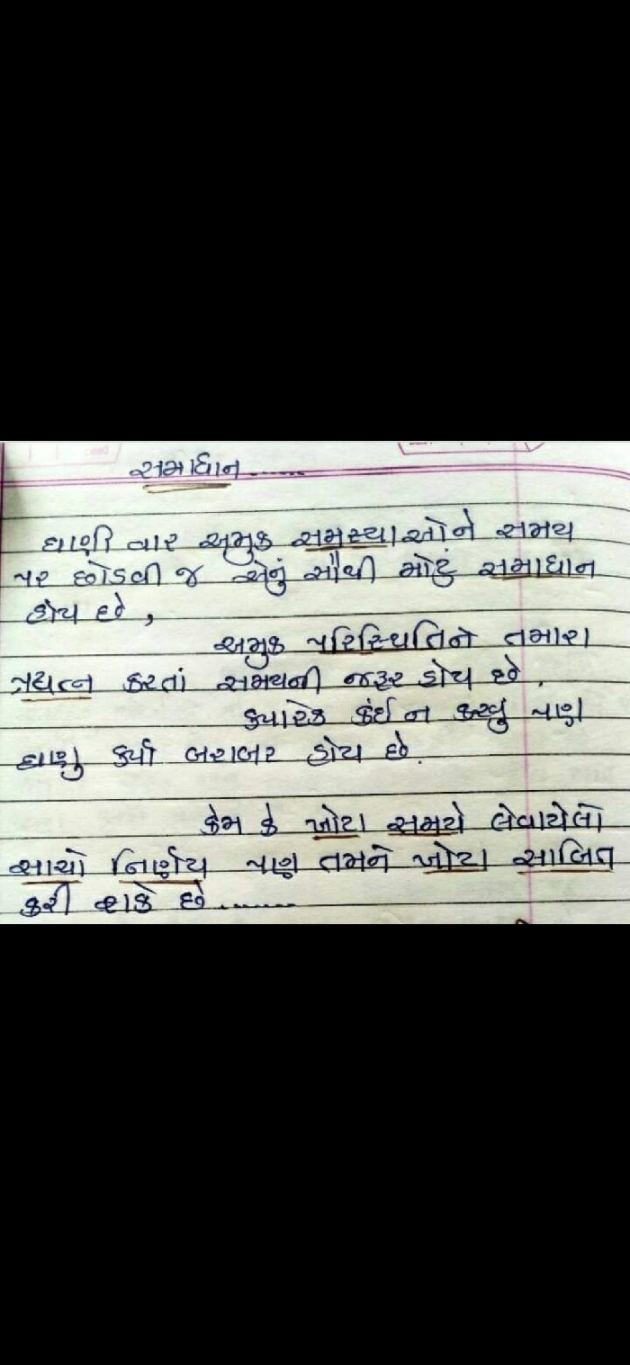 સમાધાન.......
ઘાણી વાર અમુક સમસ્યાઓને સમય
પર છોડવી જ એનું સૌથી મોટું સમાધાન
હોય છે,
અમુક પરિસ્થિતિને તમારા
પ્રયત્ન કરતાં સમયની જરૂર હોય છે.
ક્યારેક કંઈ ન કરવું પણ
ઘાણુ કર્યા બરાબર હોય છે.
કેમ કે ખોટા સમયે લેવાયેલો
સાચો નિર્ણય પણ તમને ખોટા સાબિત
કરી શકે છે.......